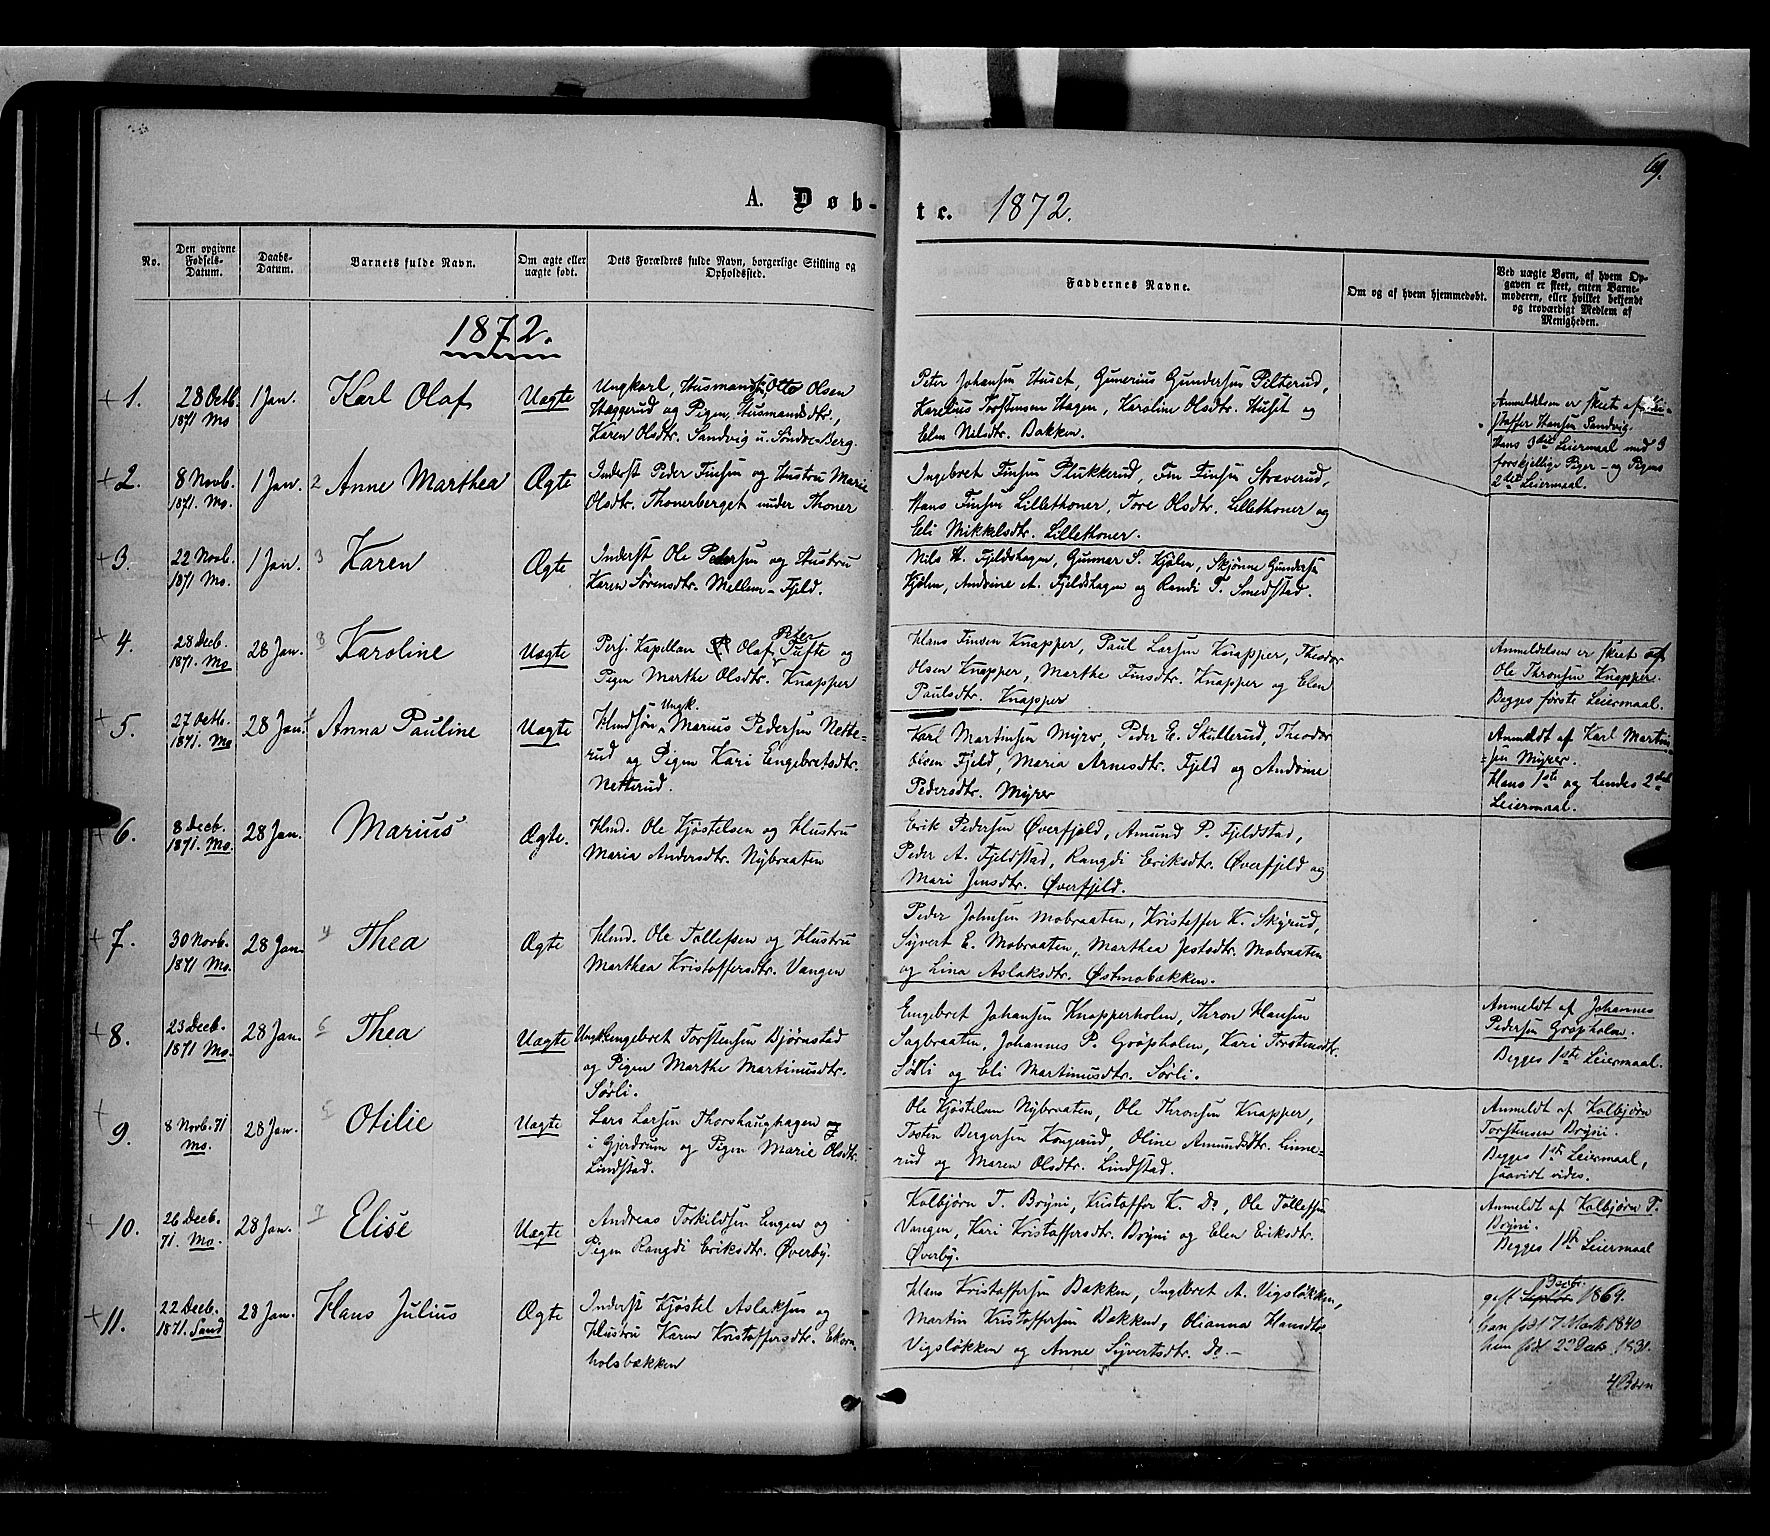 69.
A. Døb-
te. 1872.
No.
Den opgivne Fødsels-Datum.
Daabs-Datum.
Barnets fulde Navn.
Om ægte eller uægte født.
Dets Forældres fulde Navn, borgerlige Stilling og Opholdssted.
Faddernes Navne.
Om og af hvem hjemmedøbt.
Ved uægte Børn, af hvem Op-
gaven er skeet, enten Barne-
moderen, eller hvilket bekjendt
og troværdigt Medlem af
Menigheden.
1872.
+1.
28 Octb.
1871 Mo
1 Jan.
Karl Olaf
Uægte
Ungkarl, Husmands, Otto Olsen
Hæggerud og Pigen, Husmandsdtr,
Karen Olsdtr. Sandvig u. Søndre Berg.
Peter Johansen Huset, Gunerius Gundersen Pilterud,
Karelius Torstensen Hagen, Karoline Olsdtr. Huset og
Elen Nilsdtr. Bakken.
Anmeldelsen er skeet af Kri-
stoffer Hansen Sandvig.
Hans 3die Leiermaal med 3
forskjellige Piger - og Pigens
2det Leiermaal.
+2.
8 Novb.
1871. Mo.
1 Jan.
2
Anne Marthea
Ægte
Inderst Peder Finsen og Hustru Marie
Olsdtr. Thonerberget under Thoner
Ingebret Finsen Plukkerud, Fin Finsen Straverud,
Hans Finsen Lillethoner, Tore Olsdtr. Lillethoner og
Eli Mikkelsdtr. Lillethoner.
+3.
22 Novb.
1871 Mo.
1 Jan.
3
Karen
Ægte
Inderst Ole Pedersen og Hustru
Karen Sørensdtr. Mellem-Fjeld.
Nils H. Fjeldshagen, Gunnar S. Kjølen, Skjønne Gunders
Kjølen, Andrine A. Fjeldshagen og Randi T. Smedstad.
+4.
28 Decb.
1871. Mo
28 Jan.
8
Karoline
Uægte
Pers. Kapellan Olaf Peter Tufte og
Pigen Marthe Olsdtr. Knapper
Hans Finsen Knapper, Paul Larsen Knapper, Theodor
Olsen Knapper, Marthe Finsdtr. Knapper og Elen
Paulsdtr. Knapper
Anmeldelsen er skeet af
Ole Thronsen Knapper.
Begges første Leiermaal.
+5.
27 Octb.
1871. Mo
28 Jan.
Anna Pauline
Uægte
Hmdsøn Ungk. Marius Pedersen Nette-
rud og Pigen Kari Engebretsdtr.
Netterud.
Karl Martinsen Myrer, Peder E. Skullerud, Theodor
Olsen Fjeld, Maria Arnesdtr. Fjeld og Andrine
Pedersdtr. Myrer
Anmeldt af Karl Martin-
sen Myrer.
Hans 1ste og hendes 2det
Leiermaal.
+6.
8 Decb.
1871. Mo.
28 Jan.
Marius
Ægte.
Hmd. Ole Kjøstelsen og Hustru
Maria Andersdtr. Nybraaten
Erik Pedersen Øverfjeld, Amund P. Fjeldstad,
Peder A. Fjeldstad, Rangdi Eriksdtr. Øverfjeld og
Mari Jensdtr. Øverfjeld.
+7.
30 Novb.
1871 Mo.
28 Jan.
4
Thea
Ægte
Hmd. Ole Tollefsen og Hustru
Marthea Kristoffersdtr. Vangen
Peder Johnsen Mobraaten, Kristoffer K. Skyrud,
Syvert E. Mobraaten, Marthea Jestsdtr. Mobraaten
og Lina Aslaksdtr. Østmobækken.
+8.
23 Decb.
1871 Mo.
28 Jan.
6
Thea
Uægte
Ungk Engebret Torstensen Bjørnstad
og Pigen Marthe Martinusdtr.
Sørli.
Engebret Johansen Knapperholen, Thron Hansen
Sagbraaten, Johannes P. Grøpholen, Kari Torstensdtr.
Sørli og Eli Martinusdtr. Sørli.
Anmeldt af Johannes
Pedersen Grøpholen.
Begges 1ste Leiermaal.
+ 9.
8 Novb. 71
Mo.
28 Jan.
5
Otilie
Uægte
Lars Larsen Thorshaughagen
i Gjerdrum og Pigen Marie Olsdtr.
Lindstad.
Ole Kjøstelsen Nybraaten, Ole Thronsen Knapper,
Tosten Bergersen Kongerud, Oline Amundsdtr. Linne-
rud og Maren Olsdtr. Lindstad.
Anmeldt af Kolbjørn
Torstensen Bryni.
Begges 1ste Leiermaal,
saavidt vides.
+ 10.
26 Decb.
71. Mo.
28 Jan.
7
Elise
Uægte
Andreas Torkildsen Engen og
Pigen Rangdi Eriksdtr. Øverby.
Kolbjørn T. Bryni, Kristoffer K. Do, Ole Tollefsen
Vangen, Kari Kristoffersdtr. Bryni og Elen Eriksdtr.
Øverby.
Anmeldt af Kolbjørn T.
Bryni.
Begges 1ste Leiermaal
+11.
22 Decb.
1871. Sand
28 Jan.
Hans Julius
Ægte
Inderst Kjøstel Aslaksen og
Hustru Karen Kristoffersdtr. Ekorn-
holsbækken
Hans Kristoffersen Bakken, Ingebret A. Vigsløkken,
Martin Kristoffersen Bakken, Olianna Hansdtr
Vigsløkken og Anne Syvertsdtr. Do. -
gift Decbr. 1869.
han født 7 Marts 1840
hun født 1831.
4 Børn